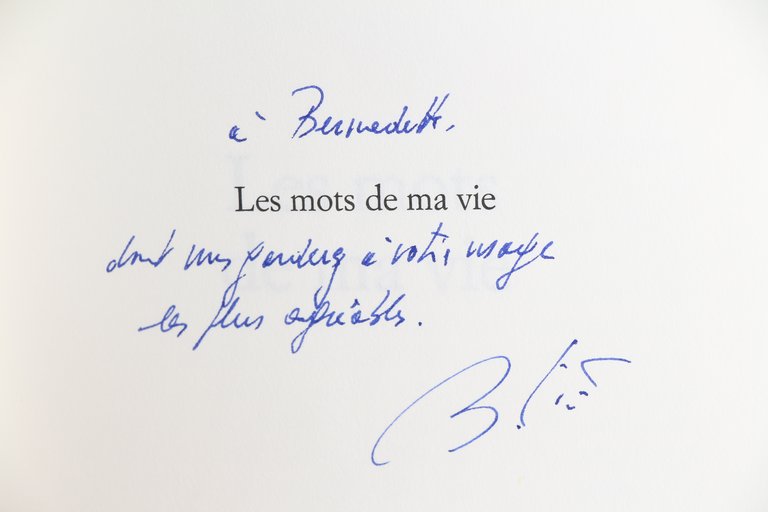 à Bernadette,
Les mots de ma vie
dont vous garderez à votre usage
les plus agréables.
B.